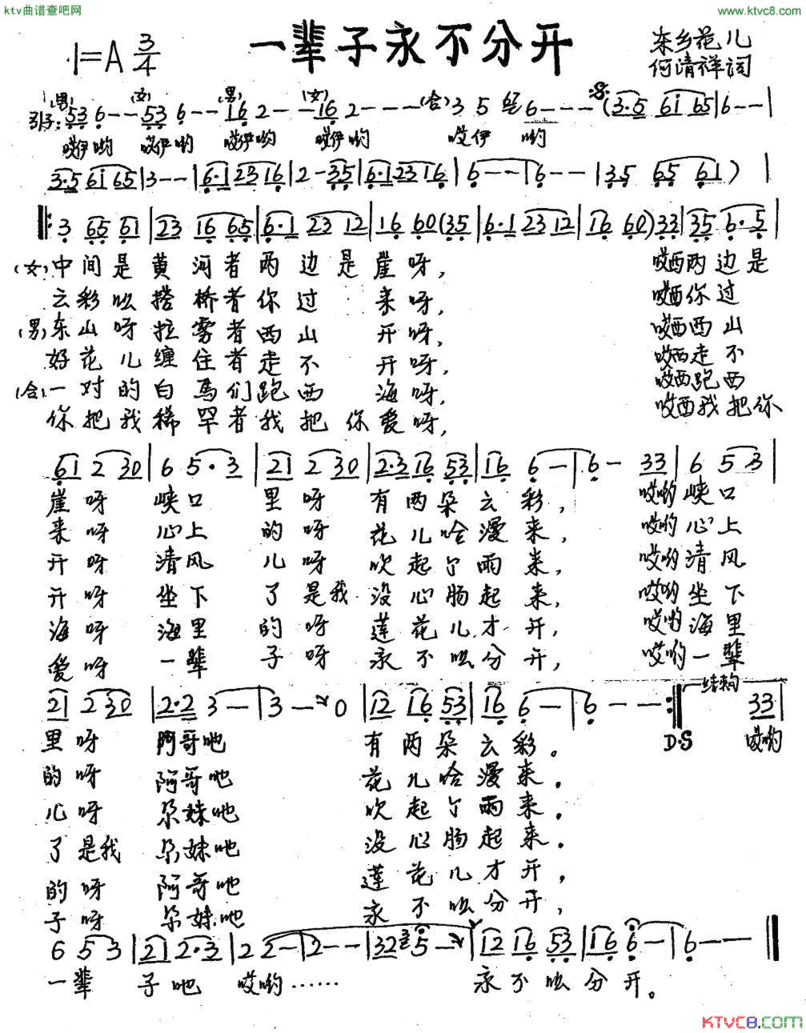 ktv曲谱查吧网
www.ktvc8.com
一辈子永不分开
1=A 3/4
东乡花儿
何清祥词
(男) (女) (男) (女) (合)
引子: 53 6 - - 53 6 - - 16 2 - - 16 2 - - - 3 5 6 - - - (3·5 61 65 | 6 - - |
哎伊哟 哎伊哟 哎伊哟 哎伊哟 哎伊 哟
3·5 61 65 | 3 - - | 6·1 23 16 | 2 - 35 | 6·1 23 16 | 6 - - | 6 - - | 35 65 61 ) |
‖: 3 65 61 | 23 16 65 | 6·1 23 12 | 16 60 (35 | 6·1 23 12 | 16 60) 33 | 35 6·5 |
(女)中间是黄河者两边是崖呀, 哎西两边是
云彩吆搭桥者你过来呀, 哎西你过
(男)东山呀拉雾者西山开呀, 哎西西山
好花儿缠住者走不开呀, 哎西走不
(合)一对的白馬们跑西海呀, 哎西跑西
你把我稀罕者我把你爱呀, 哎西我把你
61 2 30 | 6 5·3 | 21 2 30 | 2·3 16 53 | 16 6 - | 6 - 33 | 6 5 3 |
崖呀 峡口 里呀 有两朵云彩, 哎哟峡口
来呀 心上 的呀 花儿哈漫来, 哎哟心上
开呀 清风 儿呀 吹起个雨来, 哎哟清风
开呀 坐下 了是我 没心肠起来, 哎哟坐下
海呀 海里 的呀 莲花儿才开, 哎哟海里
爱呀 一辈 子呀 永不吆分开, 哎哟一辈
结束句
21 2 30 | 2·2 3 - | 3 - 0 | 12 16 53 | 16 6 - | 6 - - :‖ 33 |
里呀 阿哥吔 有两朵云彩。 D·S 哎哟
的呀 阿哥吔 花儿哈漫来.
儿呀 尕妹吔 吹起个雨来.
了是我 尕妹吔 没心肠起来.
的呀 阿哥吔 莲花儿才开,
子呀 尕妹吔 永不吆分开,
6 5 3 | 21 2·3 | 2 2 - | 2 - - | 32 3 5 - | 12 16 53 | 16 6 - | 6 - - - ‖
一辈 子吔 哎哟…… 永不吆分开。
KTVC8.COM